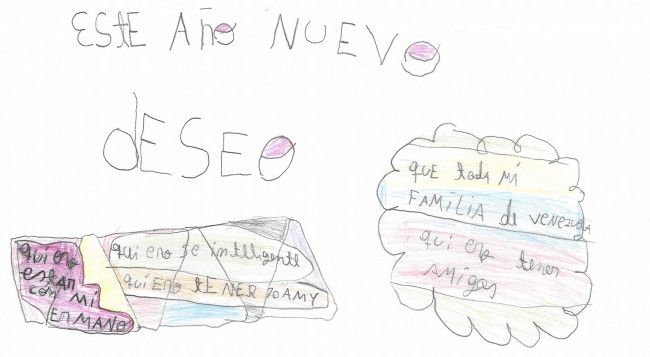 ESTE AÑO NUEVO
dESEO
quiero
estar
con mi
ERMANO
quiero se inteligente
quiero tENER 20 AMY
QUE toda Mi
FAMILIA de venezuela
quiero tener
amigos